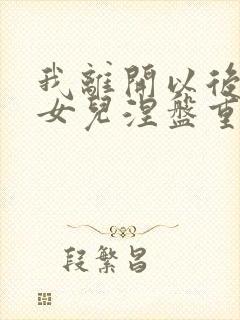 我離開以後
女兒涅盤重
段繁昌